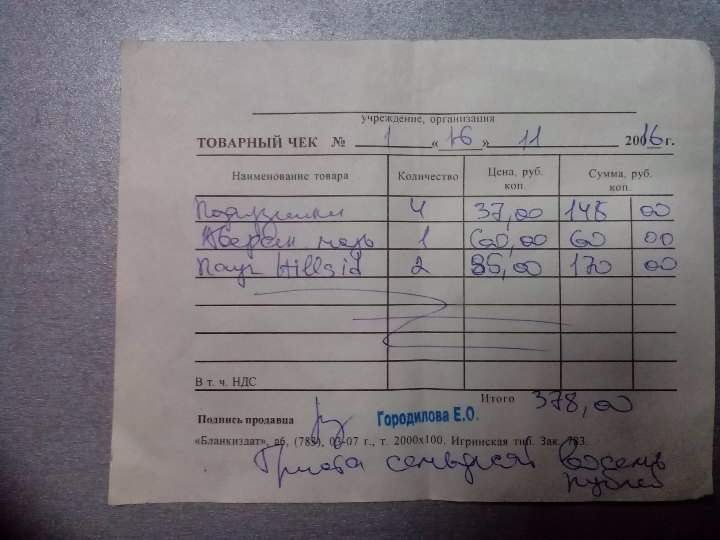 учреждение, организация
ТОВАРНЫЙ ЧЕК № 1 «16» 11 20016 г.
Наименование товара Количество Цена, руб. коп. Сумма, руб. коп.
4 37,00 148 00
мазь 1 60,00 60 00
Hills id 2 85,00 170 00
В т. ч. НДС
Итого 378,00
Подпись продавца Городилова Е.О.
«Бланкиздат», зб, (783), 03-07 г., т. 2000х100. Игринская тип. Зак. 783.
Триста семьдесят восемь
рублей